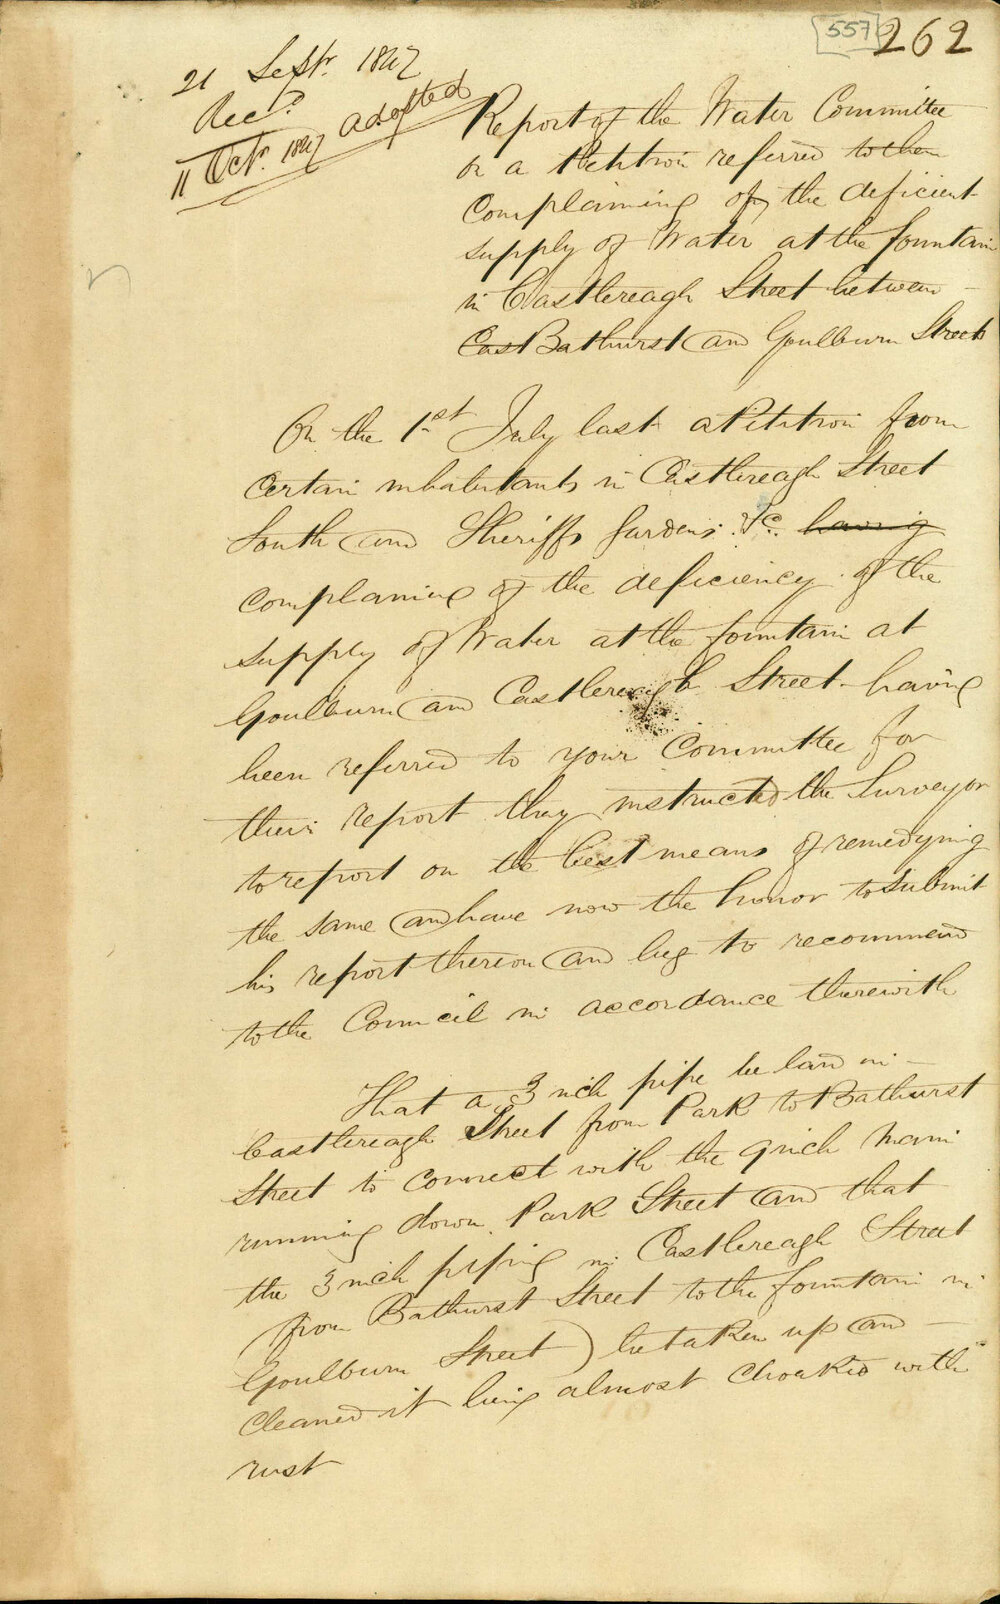 557
262
21 Septr. 1847
Recd.
11 Octr. 1847 adopted
Report of the Water Committee
on a Petition referred to them
complaining of the deficient
supply of Water at the fountain
in Castlereagh Street between
East Bathurst and Goulburn Streets
On the 1st July last a Petition from
Certain inhabitants in Castlereagh Street
South and Sheriffs Gardens &c. having
complaining of the deficiency of the
supply of Water at the fountain at
Goulburn and Castlereagh Street having
been referred to your Committee for
their report they instructed the Surveyor
to report on the best means of remedying
the same and have now the honor to submit
his report thereon and beg to recommend
to the Council in accordance therewith
That a 3 inch pipe be laid in
Castlereagh Street from Park to Bathurst
Street to connect with the 9 inch main
running down Park Street and that
the 3 inch piping in Castlereagh Street
from Bathurst Street to the fountain in
Goulburn Street) be taken up and
cleaned it being almost choaked with
rust